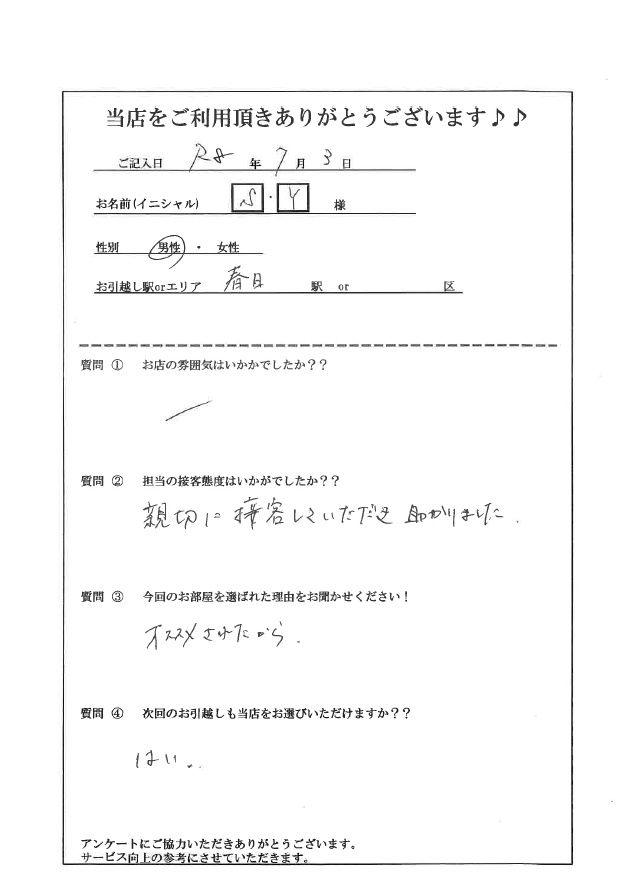 当店をご利用頂きありがとうございます♪♪
ご記入日 R8 年 7 月 3 日
お名前(イニシャル) S ・ Y 様
性別 男性 ・ 女性
お引越し駅orエリア 春日 駅 or 区
質問 ① お店の雰囲気はいかかでしたか??
質問 ② 担当の接客態度はいかがでしたか??
親切に接客していただき助かりました.
質問 ③ 今回のお部屋を選ばれた理由をお聞かせください!
オススメされたから.
質問 ④ 次回のお引越しも当店をお選びいただけますか??
はい.
アンケートにご協力いただきありがとうございます。
サービス向上の参考にさせていただきます。